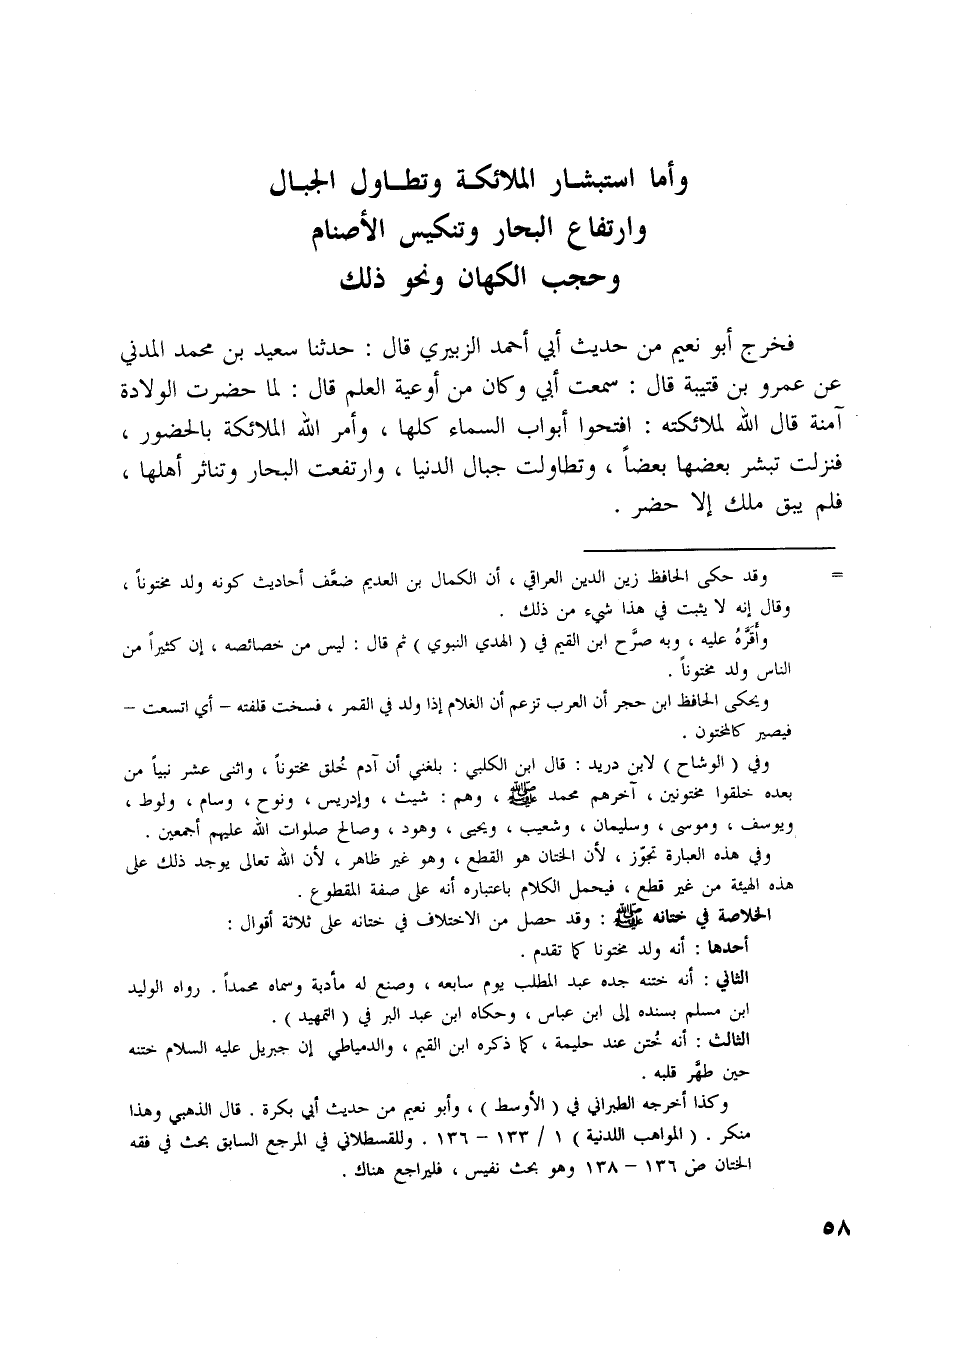 وأما استبشار الملائكة وتطاول الجبال
وارتفاع البحار وتنكيس الأصنام
وحجب الكهان ونحو ذلك
فخرج أبو نعيم من حديث أبي أحمد الزبيري قال : حدثنا سعيد بن محمد المدني
عن عمرو بن قتيبة قال : سمعت أبي وكان من أوعية العلم قال : لما حضرت الولادة
آمنة قال الله لملائكته : افتحوا أبواب السماء كلها ، وأمر الله الملائكة بالحضور ،
فنزلت تبشر بعضها بعضاً ، وتطاولت جبال الدنيا ، وارتفعت البحار وتناثر أهلها ،
فلم يبق ملك إلا حضر .
= وقد حكى الحافظ زين الدين العراقي ، أن الكمال بن العديم ضعَّف أحاديث كونه ولد مختوناً ،
وقال إنه لا يثبت في هذا شيء من ذلك .
وأَقَرَّهُ عليه ، وبه صرَّح ابن القيم في ( الهدي النبوي ) ثم قال : ليس من خصائصه ، إن كثيراً من
الناس ولد مختوناً .
ويحكى الحافظ ابن حجر أن العرب تزعم أن الغلام إذا ولد في القمر ، فسخت قلفته – أي اتسعت –
فيصير كالمختون .
وفي ( الوشاح ) لابن دريد : قال ابن الكلبي : بلغني أن آدم خُلق مختوناً ، واثنى عشر نبياً من
بعده خلقوا مختونين ، آخرهم محمد ﷺ ، وهم : شيث ، وإدريس ، ونوح ، وسام ، ولوط ،
ويوسف ، وموسى ، وسليمان ، وشعيب ، ويحيى ، وهود ، وصالح صلوات الله عليهم أجمعين .
وفي هذه العبارة تجوّز ، لأن الختان هو القطع ، وهو غير ظاهر ، لأن الله تعالى يوجد ذلك على
هذه الهيئة من غير قطع ، فيحمل الكلام باعتباره أنه على صفة المقطوع .
الخلاصة في ختانه ﷺ : وقد حصل من الاختلاف في ختانه على ثلاثة أقوال :
أحدها : أنه ولد مختونا كما تقدم .
الثاني : أنه ختنه جده عبد المطلب يوم سابعه ، وصنع له مأدبة وسماه محمداً . رواه الوليد
ابن مسلم بسنده إلى ابن عباس ، وحكاه ابن عبد البر في ( التمهيد ) .
الثالث : أنه خُتن عند حليمة ، كما ذكره ابن القيم ، والدمياطي إن جبريل عليه السلام ختنه
حين طهَّر قلبه .
وكذا أخرجه الطبراني في ( الأوسط ) ، وأبو نعيم من حديث أبي بكرة . قال الذهبي وهذا
منكر . ( المواهب اللدنية ) ١ / ١٣٣ – ١٣٦ . وللقسطلاني في المرجع السابق بحث في فقه
الختان ص ١٣٦ – ١٣٨ وهو بحث نفيس ، فليراجع هناك .
٥٨